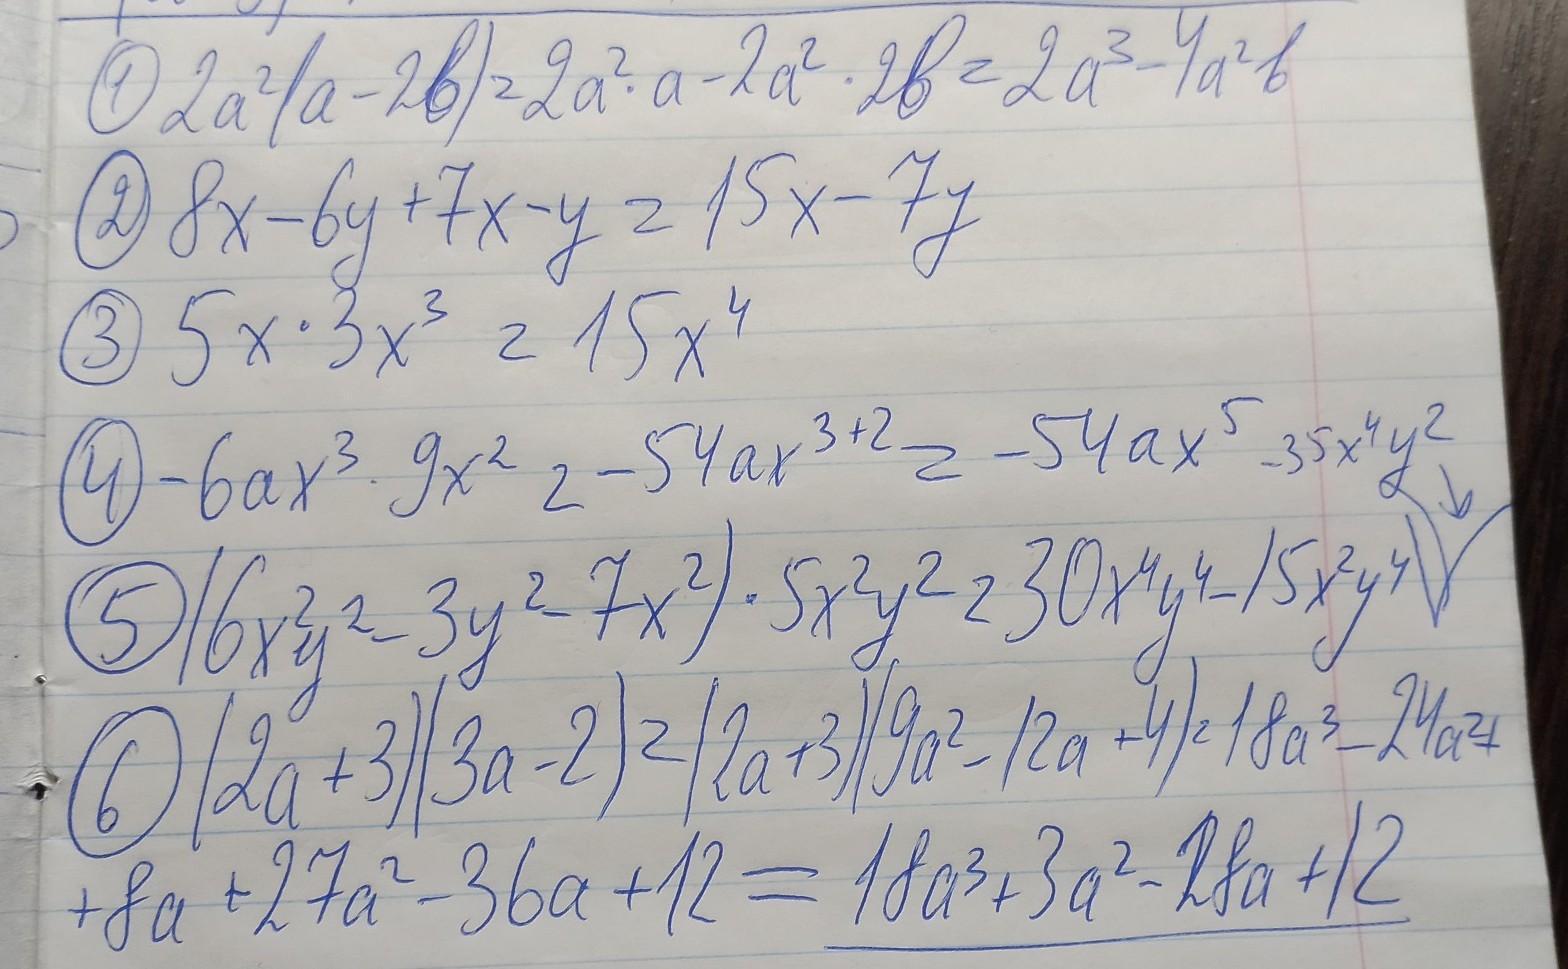 ① 2a²(a - 2b) = 2a² · a - 2a² · 2b = 2a³ - 4a²b
② 8x - 6y + 7x - y = 15x - 7y
③ 5x · 3x³ = 15x⁴
④ -6ax³ · 9x² = -54ax³⁺² = -54ax⁵
-35x⁴y²
⑤ (6x²y² - 3y² - 7x²) · 5x²y² = 30x⁴y⁴ - 15x²y⁴
⑥ (2a + 3)(3a - 2) = (2a + 3)(9a² - 12a + 4) = 18a³ - 24a² +
+ 8a + 27a² - 36a + 12 = 18a³ + 3a² - 28a + 12